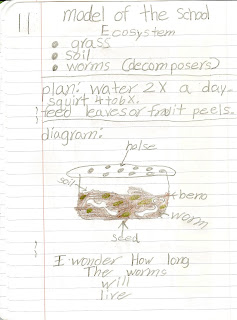 11
model of the School
Ecosystem
• grass
• soil
• worms (decomposers)
plan: water 2X a day-
squirt 4to6x.
feed leaves or fruit peels.
diagram:
holse
soil
bero
worm
seed
I wonder How long
The worms
will
live